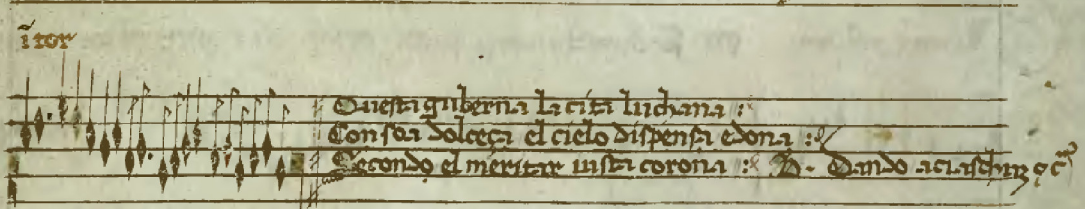 ĩtor
Questa guberna la cita luchana :
Con soa dolceça el cielo dispensa e dona :
Secondo el meritar iusta corona : Dando aciaschun